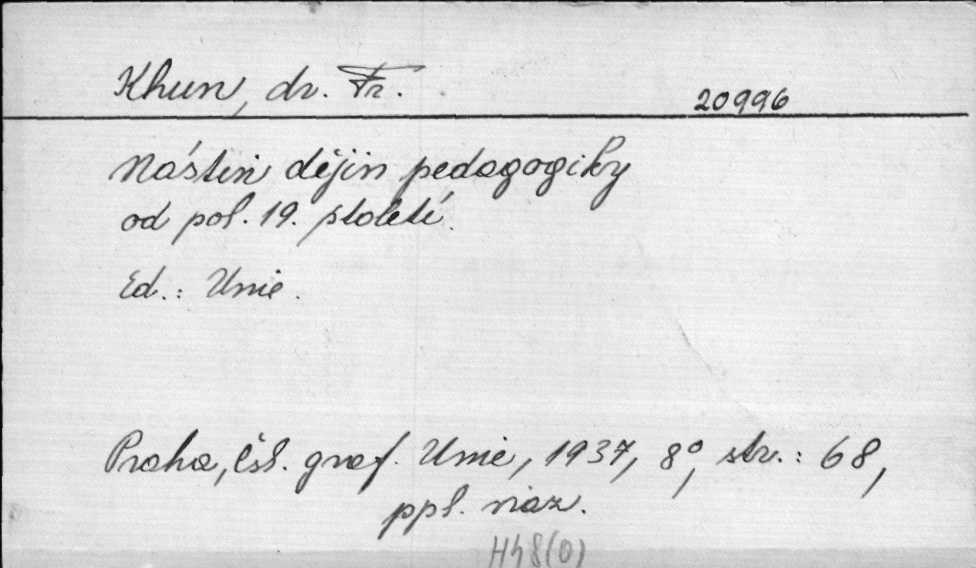 Khun, dr. Fr.
20996
Nástin dějin pedagogiky
od pol. 19. století.
Ed.: Unie.
Praha, čsl. graf. Unie, 1937, 8°, str.: 68,
ppl. viaz.
H48(0)